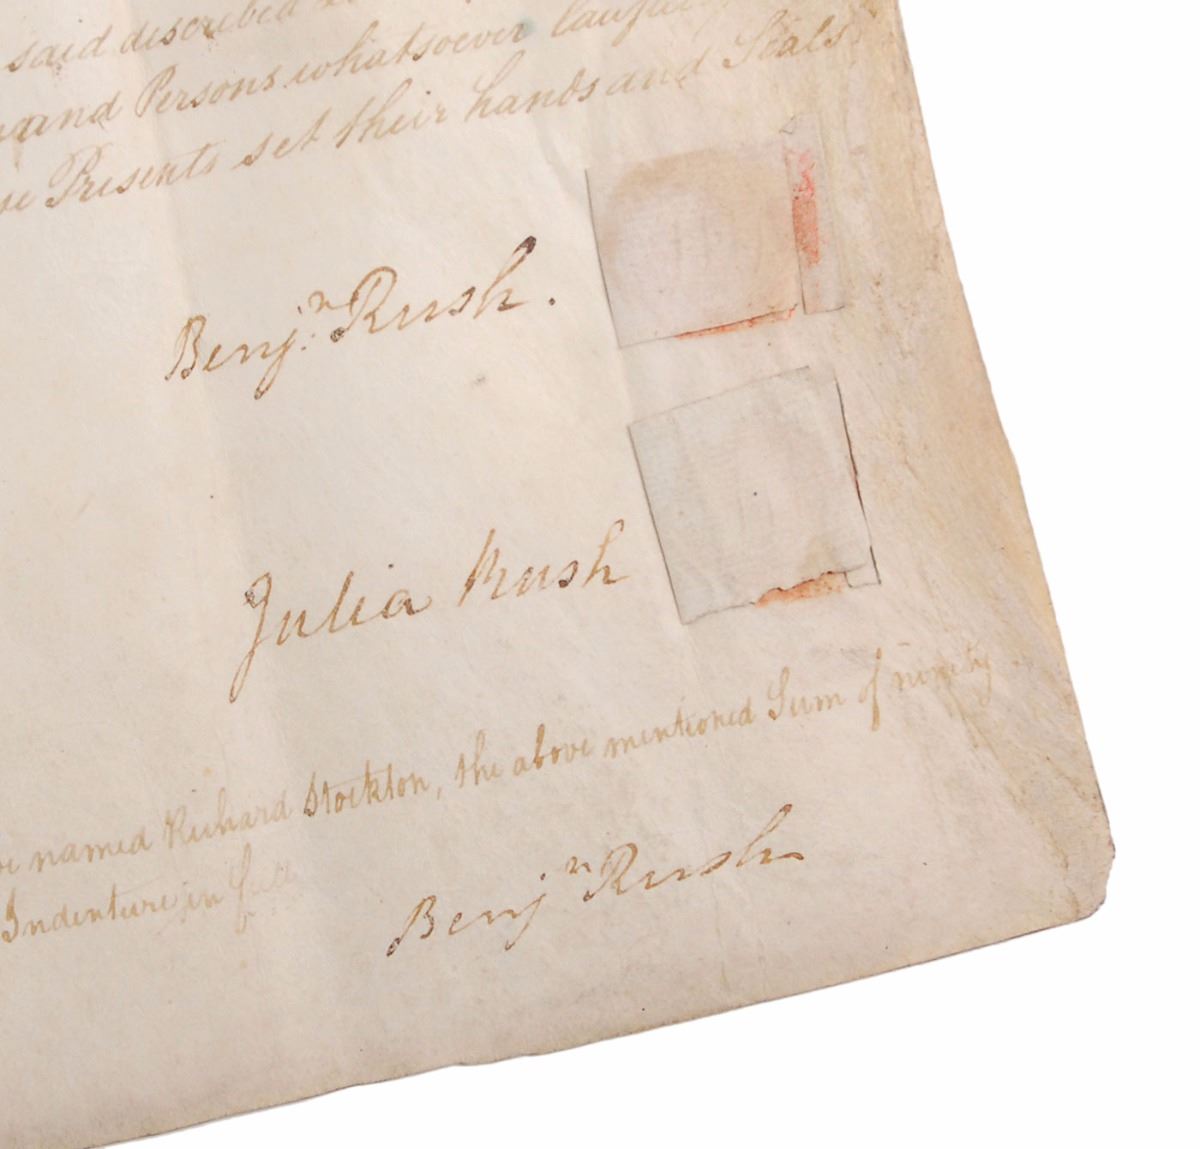 said described
and Persons whatsoever
Presents set their hands and Seals
Benjⁿ. Rush.
Julia Rush
named Richard Stockton, the above mentioned Sum of ninety
Indenture in full
Benjⁿ Rush